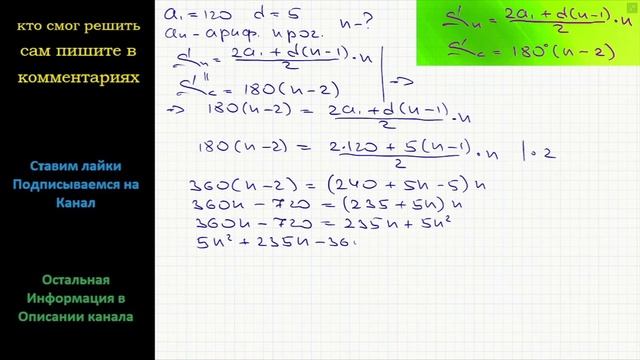 кто смог решить
сам пишите в
комментариях
Ставим лайки
Подписываемся на
Канал
Остальная
Информация в
Описании канала
a₁ = 120 d = 5 n - ?
aₙ - ариф. прог.
Sₙ = (2a₁ + d(n-1))/2 · n
||
S꜀ = 180(n-2) =>
=> 180(n-2) = (2a₁ + d(n-1))/2 · n
180(n-2) = (2·120 + 5(n-1))/2 · n | · 2
360(n-2) = (240 + 5n - 5)n
360n - 720 = (235 + 5n)n
360n - 720 = 235n + 5n²
5n² + 235n - 36
Sₙ = (2a₁ + d(n-1))/2 · n
S꜀ = 180°(n-2)